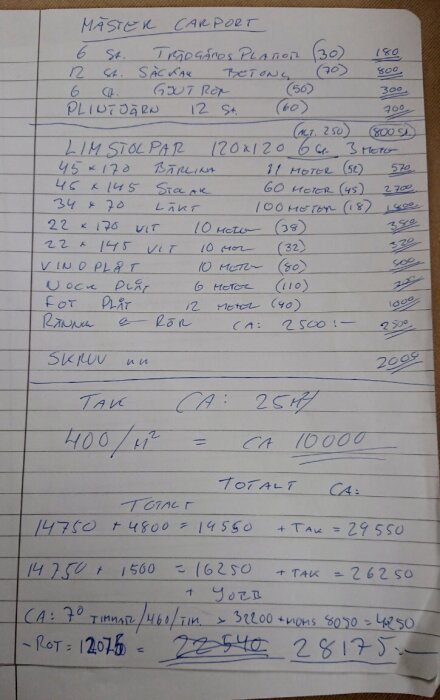 MÄSTER CARPORT
6 ST. TRÄDGÅRDSPLATTOR (30) 180
12 ST. SÄCKAR BETONG (70) 800
6 ST. GJUTRÖR (50) 300
PLINTJÄRN 12 ST (60) 700
(ALT. 250) (800 ST.)
LIMSTOLPAR 120x120 6 ST. 3 METER
45 x 170 BÄRLINA 11 METER (52) 570
45 x 145 STOLAR 60 METER (45) 2700
34 x 70 LÄKT 100 METER (18) 1800
22 x 170 VIT 10 METER (38) 380
22 x 145 VIT 10 METER (32) 320
VINDPLÅT 10 METER (80)
NOCK PLÅT 6 METER (110)
FOT PLÅT 12 METER (40)
RÄNNA & RÖR CA: 2500:-
SKRUV MM 2000
TAK CA: 25 M²
400/M² = CA 10000
TOTALT CA:
TOTALT
14750 + 4800 = 19550 + TAK = 29550
14750 + 1500 = 16250 + TAK = 26250
+
CA: 70 TIMMAR/460/TIM. 32200 + MOMS 8050 =
-ROT = 12075 = 22540 28175:-